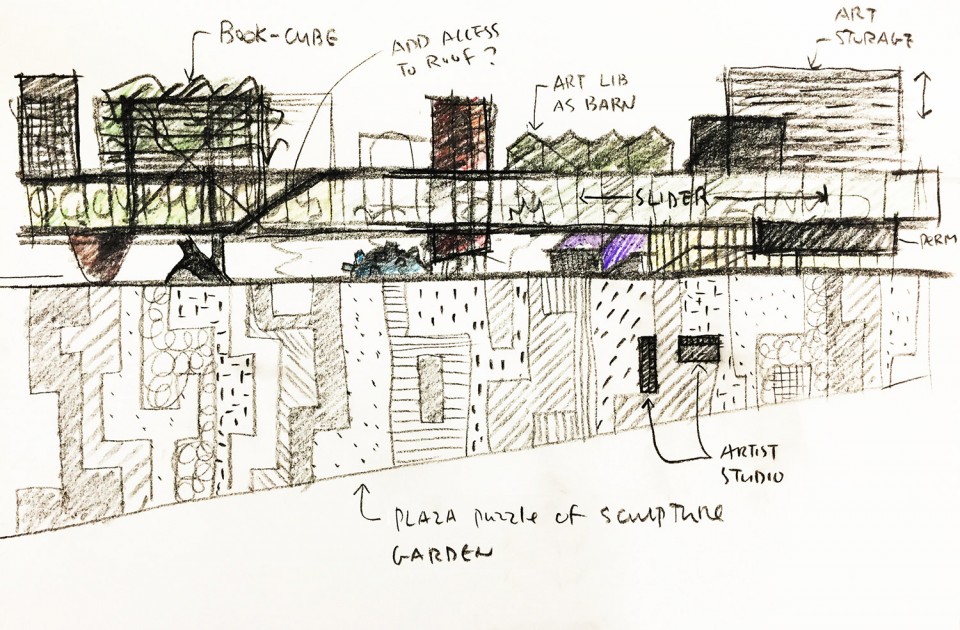 BOOK-CUBE
ADD ACCESS
TO ROOF?
ART LIB
AS BARN
ART
STORAGE
SLIDER
PERM
ARTIST
STUDIO
PLAZA PUZZLE OF SCULPTURE
GARDEN